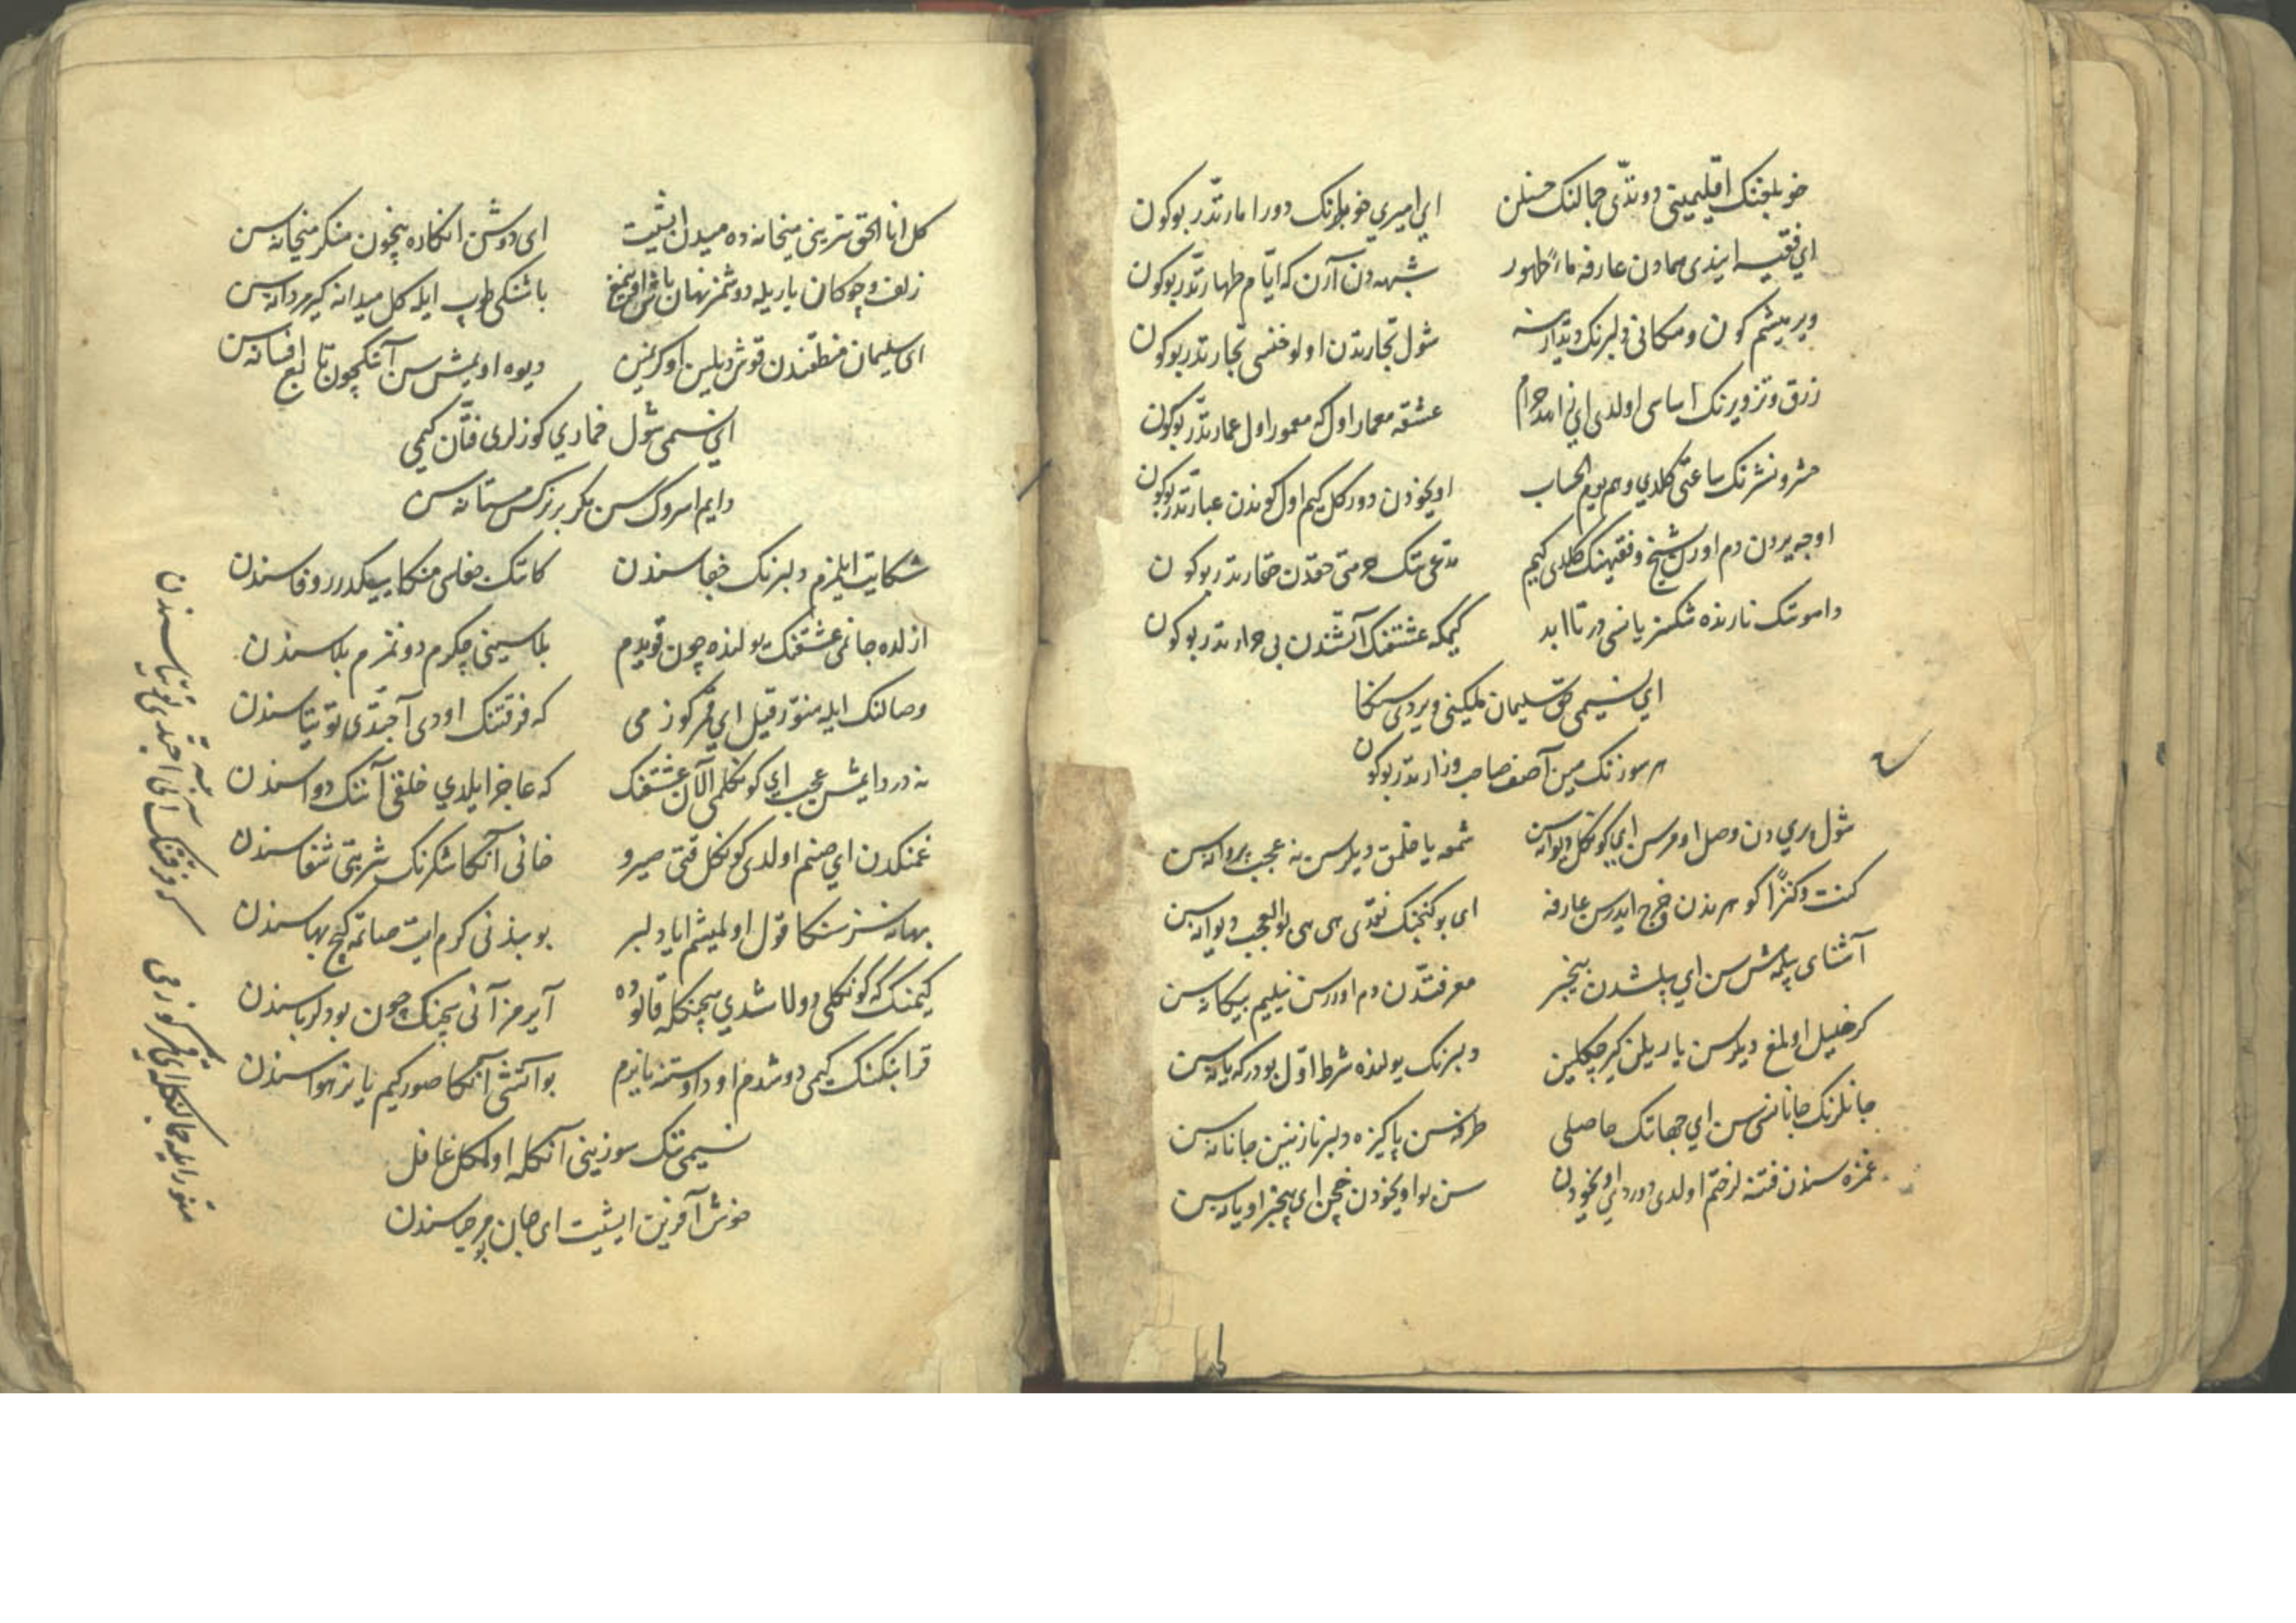 خوبلغنک اقلیمینی دوتدّی جمالنک حسنلن ای امیری خوبلرنک دور امارتدر بوکون
ای فقیه ایندی سمادن عارفه ماءً طهور شبهه دن آرن که ایّام طهارتدر بوکون
ویرمیشم کون و مکانی دلبرنک دیدارنه شول تجارتدن اولو خنسی تجارتدر بوکون
زرق و تزویرنک اساسی اولدی ای زاهد حرام عشقه معمار اول که معمور اول عمارتدر بوکون
حشر و نشرنک ساعتی کلدی و هم یوم الحساب اویخودن دور کل کیم اول کوندن عبارتدر بوکون
اوجه یردن دم اورن شیخ و فقیهنک کلدی کیم مدّعی نتک حرمتی حقدن حقارتدر بوکون
داموتنک نارنده شکسز یانسر در تا ابد کیمکه عشقنک آتشندن بی حرارتدر بوکون
ای نسیمی حق سلیمان ملکینی ویردی سنکا
هر سوزنک مین آصف صاحب وزارتدر بوکون
شول پری دن وصل اومرسن ای کونکل دیوانه سن شمعه یاقلمق دیلرسن نه عجب پروانه سن
کنت کنزاً کوهرندن خرج ایدرسن عارفه ای بو کنجنک نقدی هی هی بو العجب ویرانه سن
آشنای بیلمه مش سن ای بیلشدن بیخبر معرفتدن دم اوررسن نیلیم بیکانه سن
کر خلیل اولمغ دیلرسن یاریلن کیر چکلین دلبرنک یولنده شرط اوّل بودر که یانه سن
جانلرنک جانانی سن ای جهاننک حاصلی طرفه سن پاکیزه دلبر نازنین جانانه سن
غمزه سندن فتنه لر ختم اولدی دور ای اویخودن سن بو اویخودن خچن ای بیخبر اویانه سن
کل انا الحق سرّینی میخانه ده میدن ایشیت ای دوشن انکاره بیچون منکر میخانه سن
زلف و چوکان یاریله دوشمز نهان باش اوینمغ باشنکی طوپ ایله کل میدانه کیر مردانه سن
ای سلیمان منطقندن قوش دیلین اوکرنمین دیوه اویمش سن آنکچون تابع افسانه سن
ای نسیمی شول خماری کوزلری فتّان کیمی
دایم اسروک سن مکر بر نرکس مستانه سن
شکایت ایلزم دلبرنک جفاسندن کانک جفاسی منکا ییکدرر وفاسندن
ازلده جانمی عشقنک یولنده چون قویدم بلاسینی چکرم دونمزم بلاسندن
وصالنک ایله منوّر قیل ای قمر کوزمی که فرقتنک اودی آجتدی توتیاسندن
نه درد ایمش عجب ای کونکلمی آلان عشقنک که عاجز ایلدی خلقی آننک دواسندن
غمنکدن ای صنم اولدی کونکل قتی صیرو خانی آنکا شکرنک شربتی شفاسندن
بهانه سز سنکا قول اولمیشم ایا دلبر بو بنده نی کرم ایت صاتمه کچ بهاسندن
کیمنک که کونکلی دولاشدی بیچنکله قالوده آیرمز آنی بیچنک چون بو دلرباسندن
قرا بنکنک کیمی دوشدم اود اوستنه یانرم بو آتشی آنکا صور کیم یانر هواسندن
نسیمی ننک سوزینی آنکله اولمکل غافل
خوش آفرین ایشیت ای جان بو مرحباسندن
منوّر ایله جمالنکله ای قمر کوزمی
که فرقتنک آنی آجتدی توتیاسندن